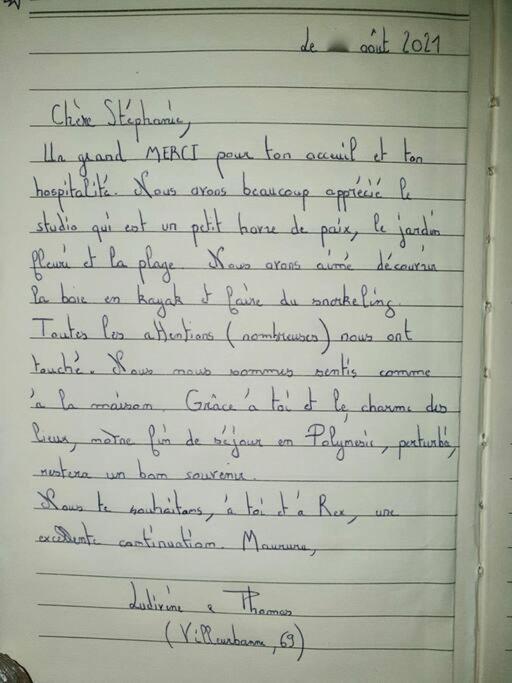 de août 2021
Chère Stéphanie,
Un grand MERCI pour ton accueil et ton
hospitalité. Nous avons beaucoup apprécié le
studio qui est un petit havre de paix, le jardin
fleuri et la plage. Nous avons aimé découvrir
la baie en kayak et faire du snorkeling.
Toutes les attentions (nombreuses) nous ont
touché. Nous nous sommes sentis comme
à la maison. Grâce à toi et le charme des
lieux, notre fin de séjour en Polynésie, perturbé,
restera un bon souvenir.
Nous te souhaitons, à toi et à Rex, une
excellente continuation. Maururu,
Ludivine & Thomas
(Villeurbanne, 69)